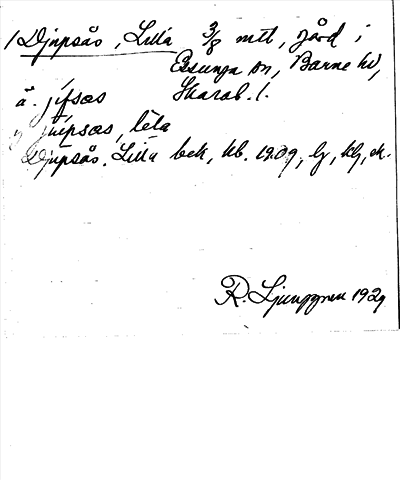 Djupsås, Lilla 3/8 mtl, gård i
Essunga sn, Barne hd,
Skarab. l.
ä. jifsas
y. jupsas, lela
Djupsås. Lilla bek, kb. 1909, lj, klj, ek.
R. Ljunggren 1929